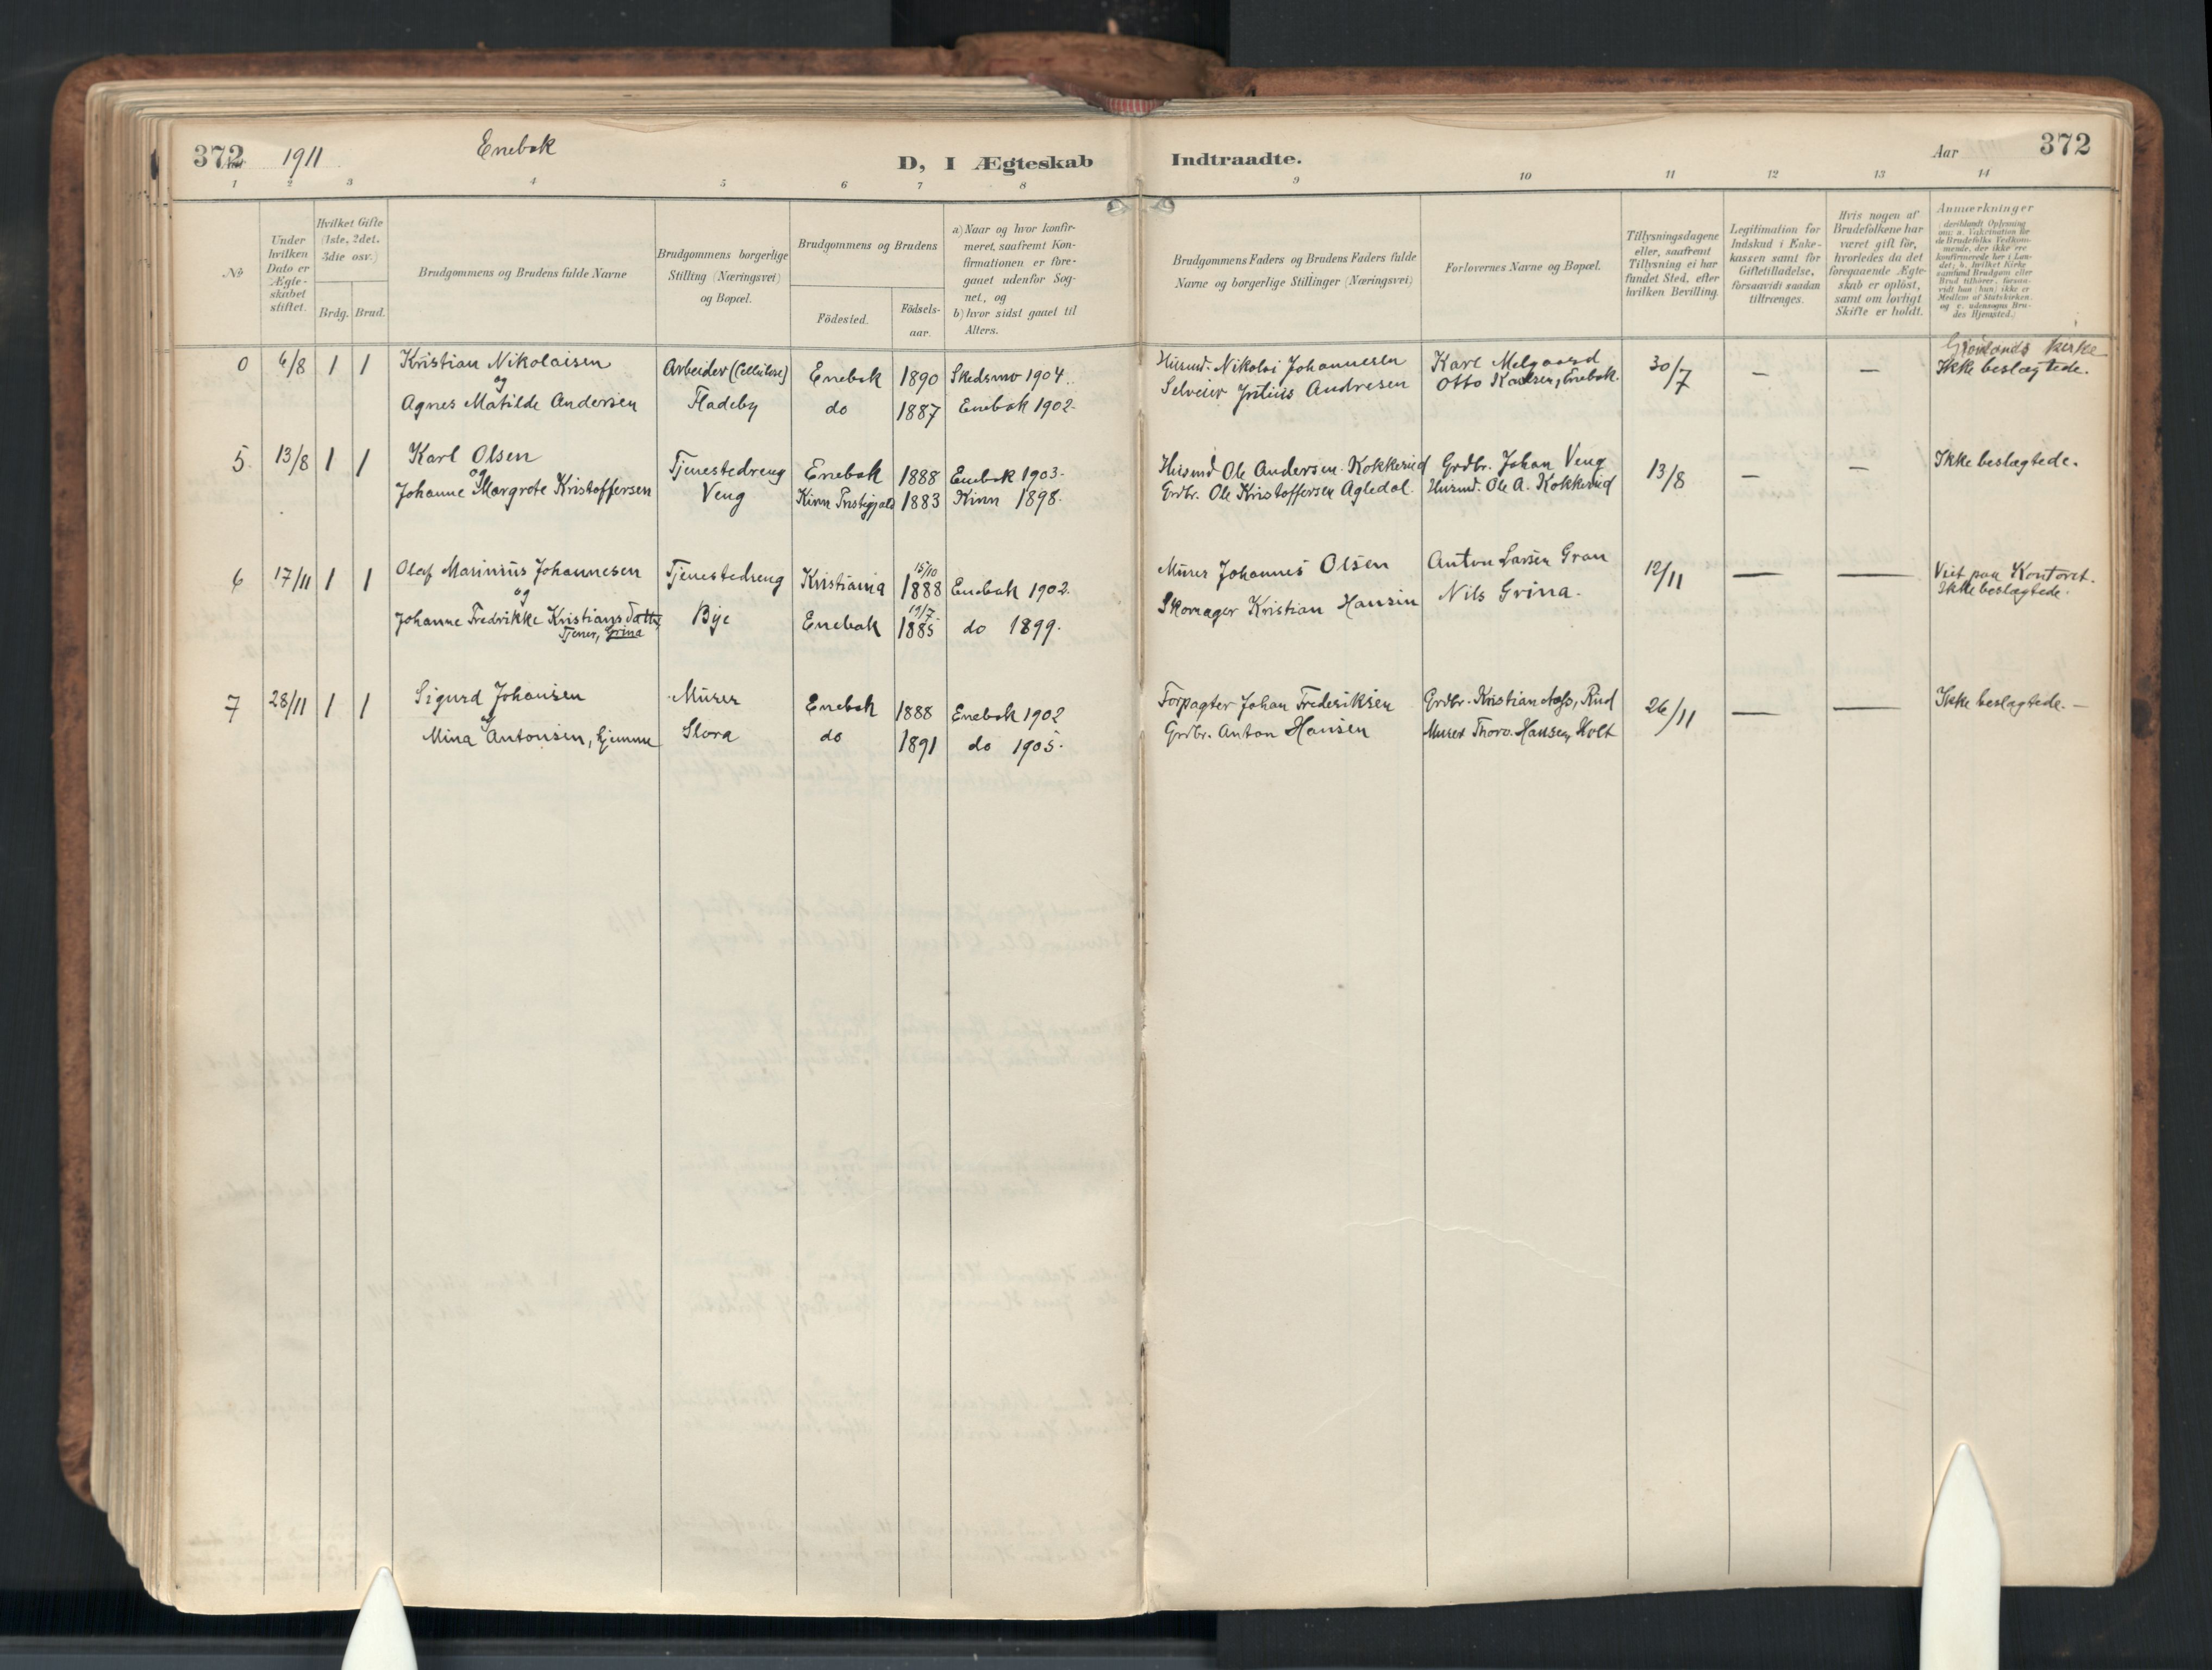 372 1911 Enebak D, I Ægteskab Indtraadte. Aar 372
1 2 3 4 5 6 7 8 9 10 11 12 13 14
№
Under hvilken Dato er Ægteskabet stiftet.
Hvilket Gifte (1ste, 2det. 3die osv.)
Brdg. Brud.
Brudgommens og Brudens fulde Navne
Brudgommens borgerlige Stilling (Næringsvei) og Bopæl.
Brudgommens og Brudens
Födested. Födsels-aar.
a) Naar og hvor konfir-
meret, saafremt Kon-
firmationen er fore-
gaaet udenfor Sog-
net, og
b) hvor sidst gaaet til
Alters.
Brudgommens Faders og Brudens Faders fulde
Navne og borgerlige Stillinger (Næringsvei)
Forlovernes Navne og Bopæl.
Tillysningsdagene
eller, saafremt
Tillysning ei har
fundet Sted, efter
hvilken Bevilling.
Legitimation for
Indskud i Enke-
kassen samt for
Giftetilladelse,
forsaavidt saadan
tiltrænges.
Hvis nogen af
Brudefolkene har
været gift för,
hvorledes da det
foregaaende Ægte-
skab er oplöst,
samt om lovligt
Skifte er holdt.
Anmærkninger
(deriblandt Oplysning
om: a. Vakcination for
de Brudefolks Vedkom-
mende, der ikke ere
konfirmerede her i Lan-
det; b. hvilket Kirke
samfund Brudgom eller
Brud tilhörer, forsaa-
vidt han (hun) ikke er
Medlem af Statskirken
og c. udensogns Bru-
des Hjemsted.)
0 6/8 1 1 Kristian Nikolaisen Arbeider (Cellulose) Enebak 1890 Skedsmo 1904. Husmd. Nikolai Johannesen Karl Melgaard 30/7 — — Grönlands kirke
og
Agnes Matilde Andersen Fladeby do 1887 Enebak 1902. Selveier Julius Andresen Otto Karlsen, Enebak. Ikke beslægtede.
5 13/8 1 1 Karl Olsen Tjenestedreng Enebak 1888 Enebak 1903. Husmd Ole Andersen Kokkerud Grdbr. Johan Veng 13/8 — — Ikke beslægtede.
og
Johanne Margrete Kristoffersen Veng Kinn Prstgjæld 1883 Kinn 1898. Grdbr. Ole Kristoffersen Agledal. Husmd. Ole A. Kokkerud
6 17/11 1 1 Olaf Marinius Johannesen Tjenestedreng Kristiania 15/10 1888 Enebak 1902. Murer Johannes Olsen Anton Larsen Gran 12/11 — — Viet paa Kontoret.
og
Johanne Fredrikke Kristiansdatter Bye Enebak 19/7 1885 do 1899. Skomager Kristian Hansen Nils Grina. Ikke beslægtede.
Tjener, Grina
7 28/11 1 1 Sigurd Johansen Murer Enebak 1888 Enebak 1902 Forpagter Johan Frederiksen Grdbr. Kristian Rud 26/11 — — Ikke beslægtede. —
og
Mina Antonsen, Gjemme Slora do 1891 do 1905. Grdbr. Anton Hansen Murer Thorv. Hansen, Holt